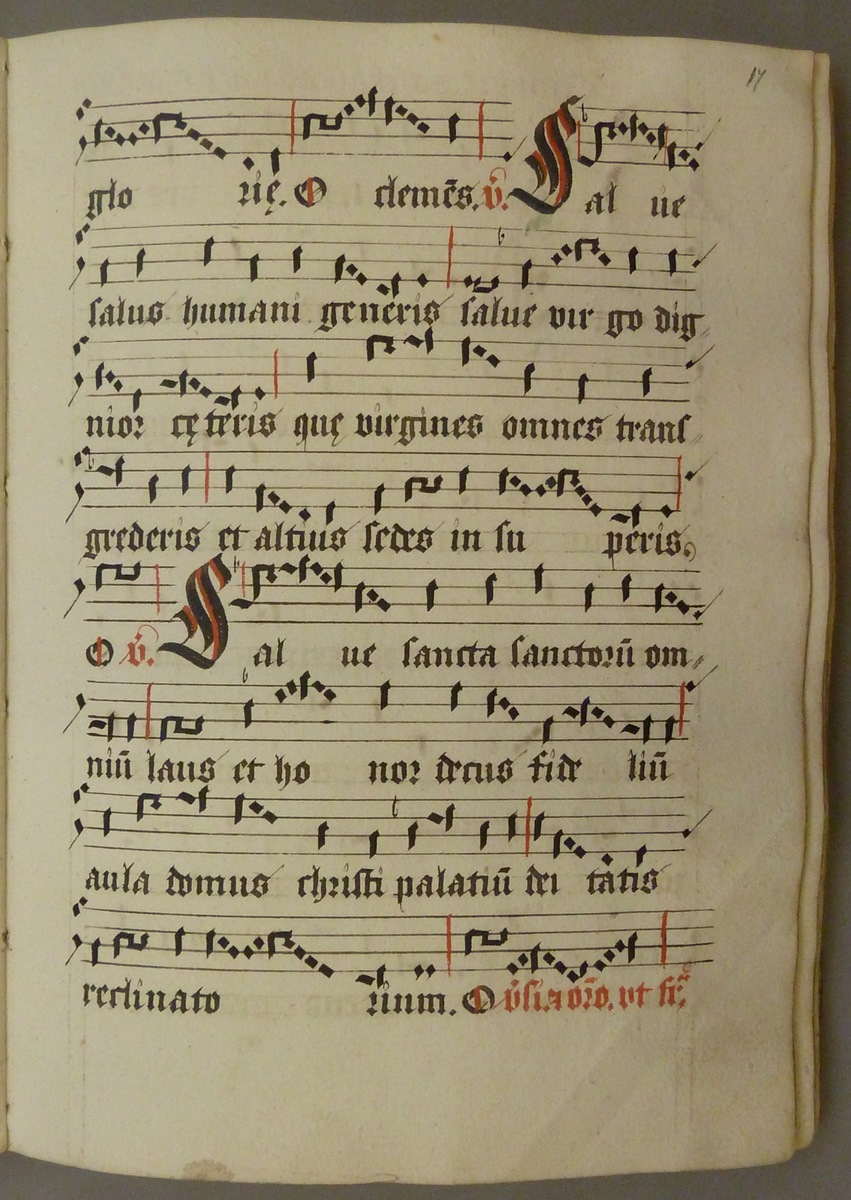 17
glo rię. O clemēs. v̄. Sal ue
salus humani generis salue vir go dig
nior cęteris quę virgines omnes transſ
grederis et altius sedes in su peris.
O v̄. Sal ue sancta sanctorū om
niū laus et ho nor decus fide liū
aula domus christi palatiū dei tatis
reclinato rium. O ut